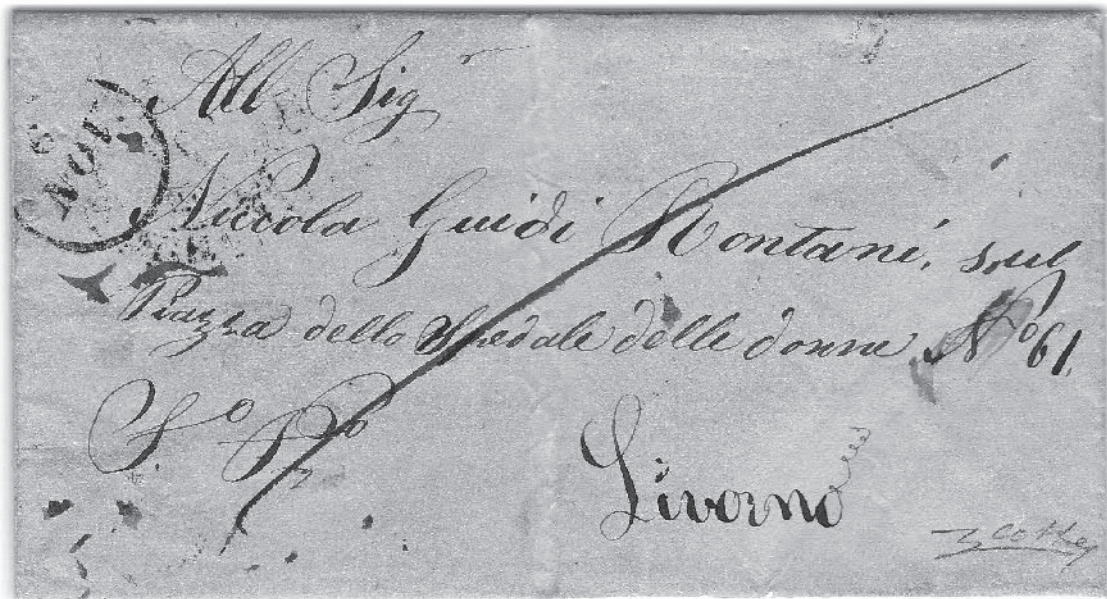 All Sig^r
6
NOV.
Niccola Guidi Rontani, sul
Piazza dello Spedale delle donne N° 61.
S.° P.°
Livorno